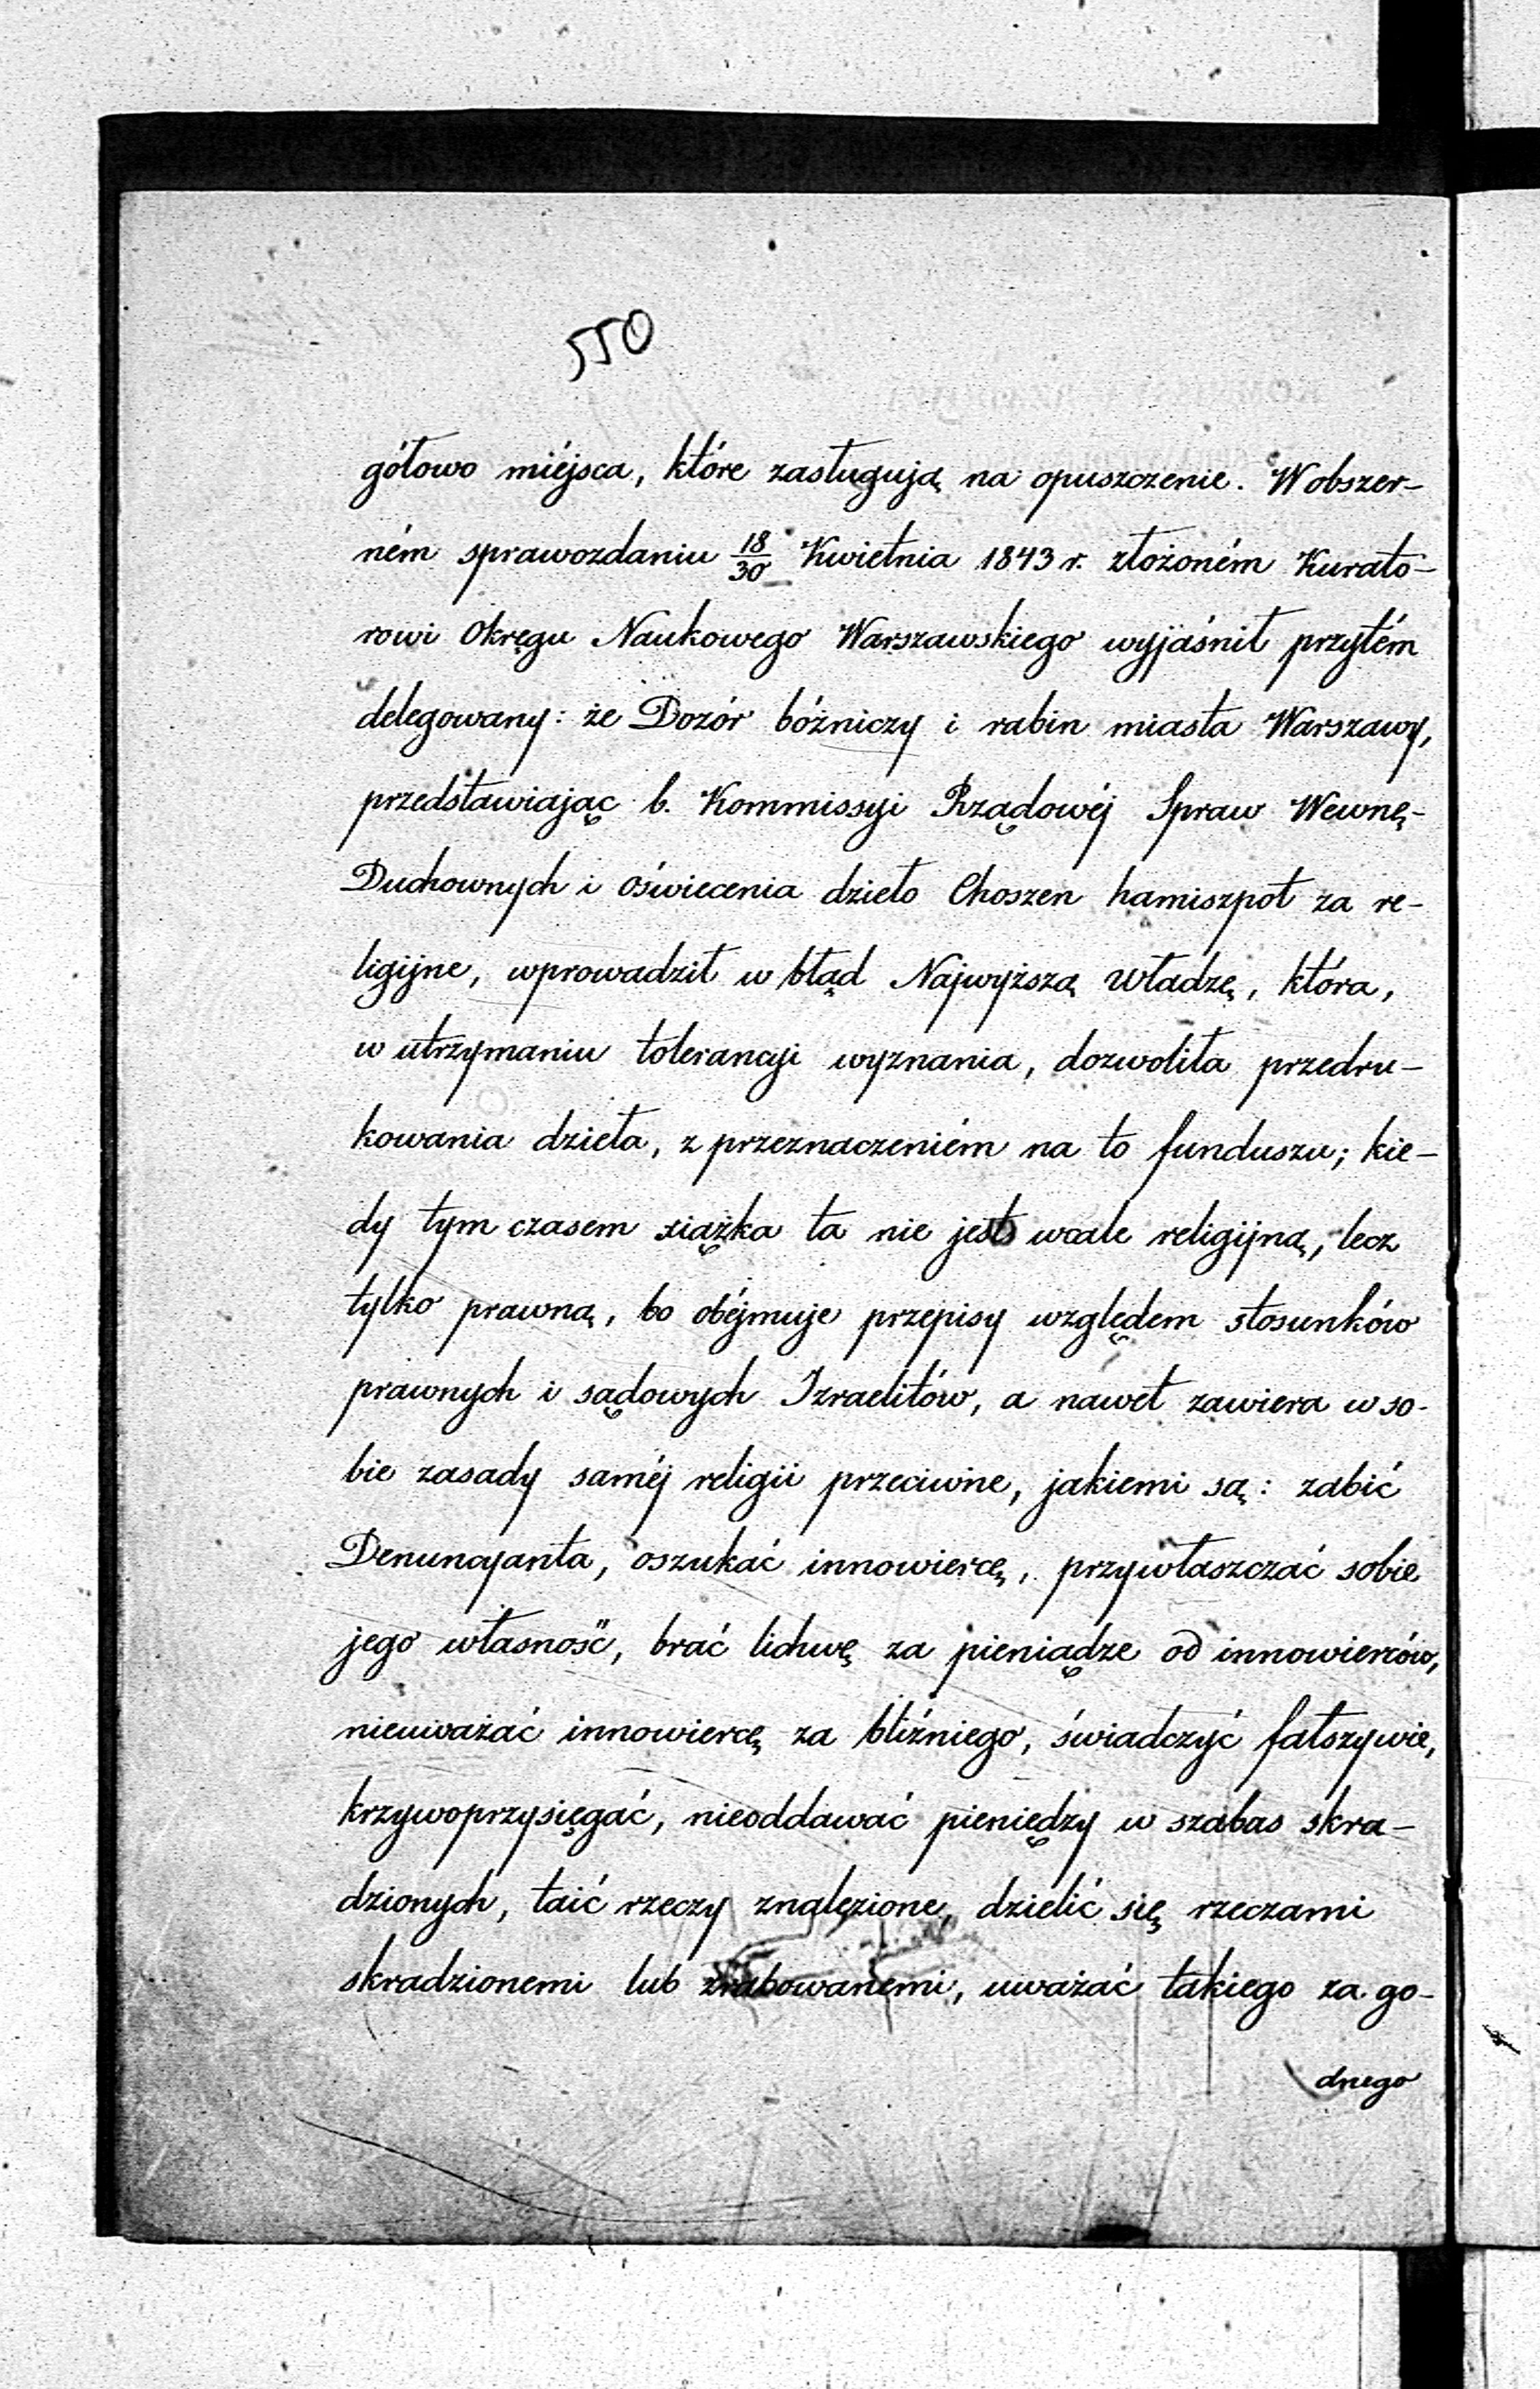 550
gółowo miéjsca, które zasługują na opuszczenie. W obszer-
ném sprawozdaniu 18/30 Kwietnia 1843 r. złożoném Kurato-
rowi Okręgu Naukowego Warszawskiego wyjaśnił przytém
delegowany: że Dozór bóżniczy i rabin miasta Warszawy,
przedstawiając b. Kommissyi Rządowéj Spraw Wewnę-
Duchownych i oświecenia dzieło Choszen hamiszpot za re-
ligijne, wprowadził w błąd Najwyższą Władzę, która,
w utrzymaniu tolerancyi wyznania, dozwoliła przedru-
kowania dzieła, z przeznaczeniém na to funduszu; kie-
dy tym czasem xiążka ta nie jest wcale religijną, lecz
tylko prawną, bo obéjmuje przepisy względem stosunków
prawnych i sądowych Izraelitów, a nawet zawiera w so-
bie zasady saméj religii przeciwne, jakiemi są: zabić
Denuncyanta, oszukać innowiercę, przywłaszczać sobie
jego własność, brać lichwę za pieniądze od innowierców,
nieuważać innowiercę za bliźniego, świadczyć fałszywie,
krzywoprzysięgać, nieoddawać pieniędzy w szabas skra-
dzionych, taić rzeczy znalezione, dzielić się rzeczami
skradzionemi lub zrabowanemi, uważać takiego za go-
dnego